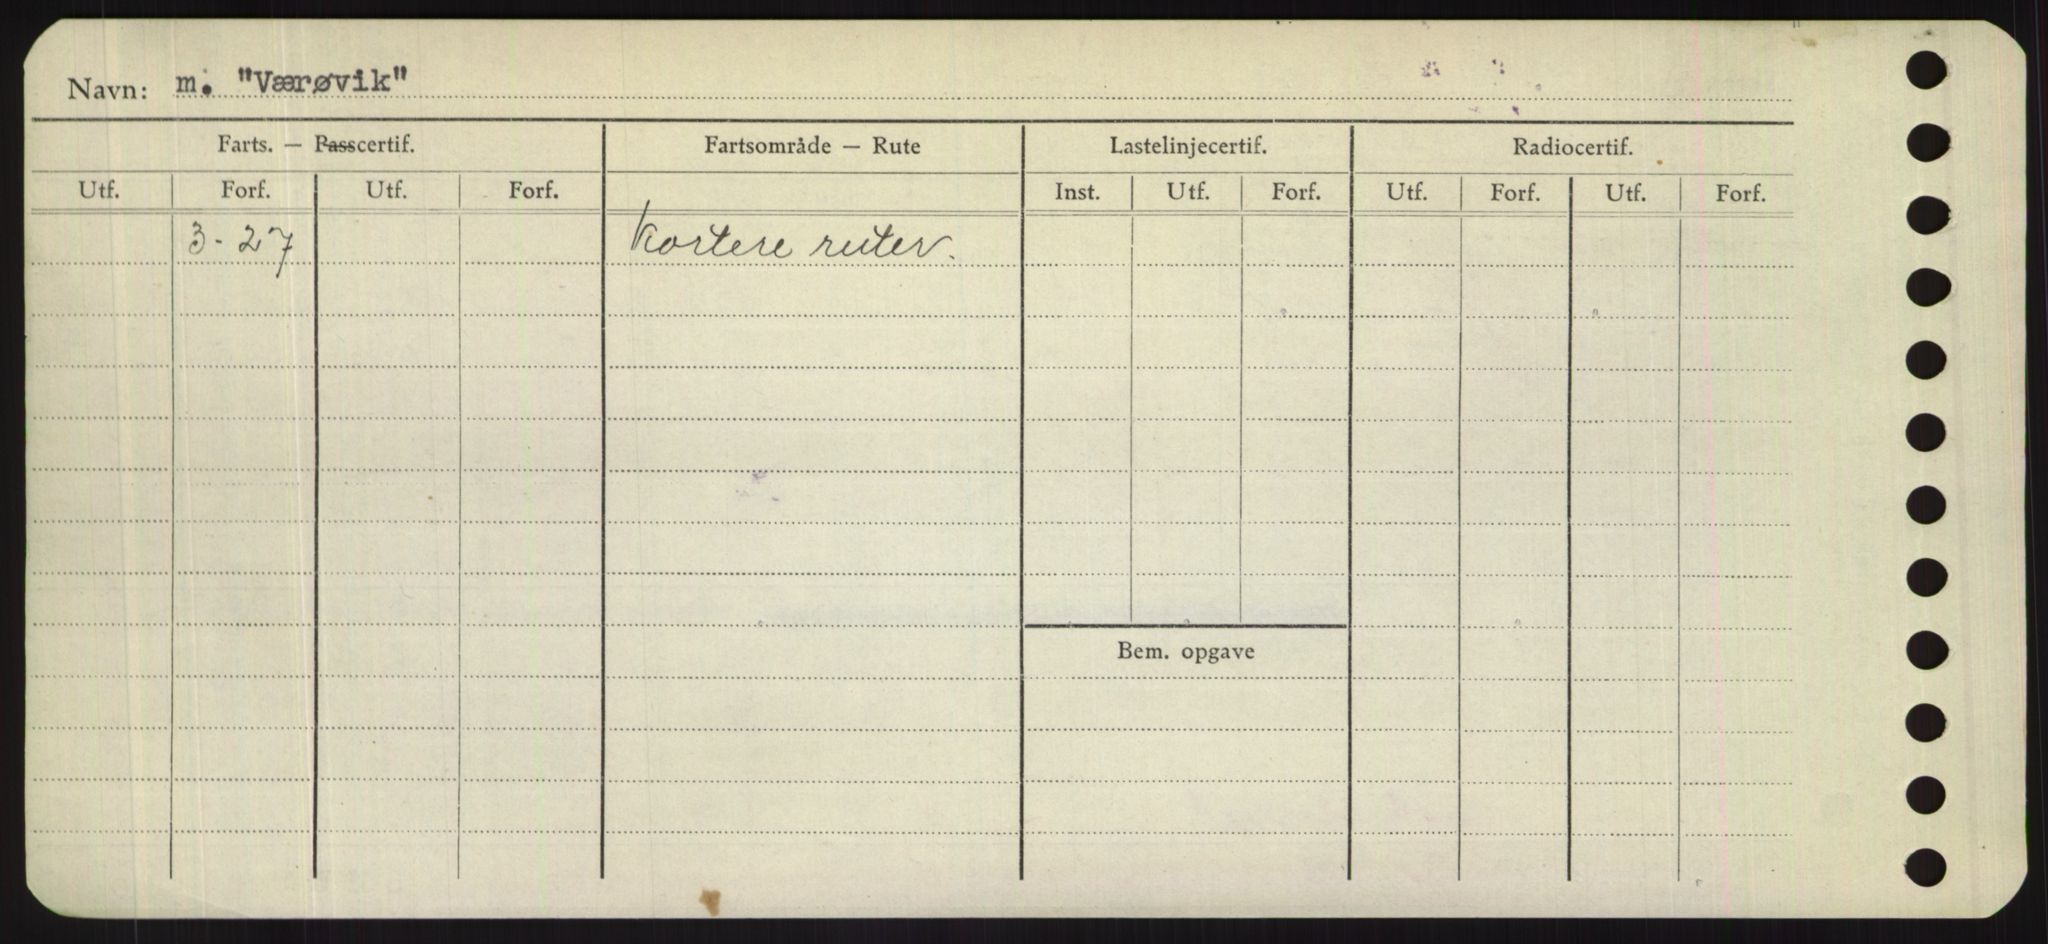 Navn: m. "Værøvik"
Farts. — Passcertif. Fartsområde — Rute Lastelinjecertif. Radiocertif.
Utf. Forf. Utf. Forf. Inst. Utf. Forf. Utf. Forf. Utf. Forf.
3-27 Kortere ruter.
Bem. opgave